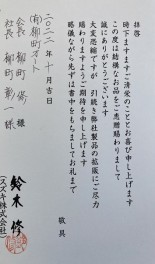 拝啓
時下ますますご清栄のこととお喜び申し上げます
この度は結構なお品をご恵贈賜わりまして
誠にありがとうございます
大変恐縮ですが 引続き弊社製品の拡販にご尽力
賜わりますようご期待を申し上げます
略儀ながら先ずは書中をもちましてお礼まで
敬具
十月吉日
(有)柳町オート
会長 柳町 様
社長 柳町 彰一 様
鈴木 修
(スズキ株式会社)